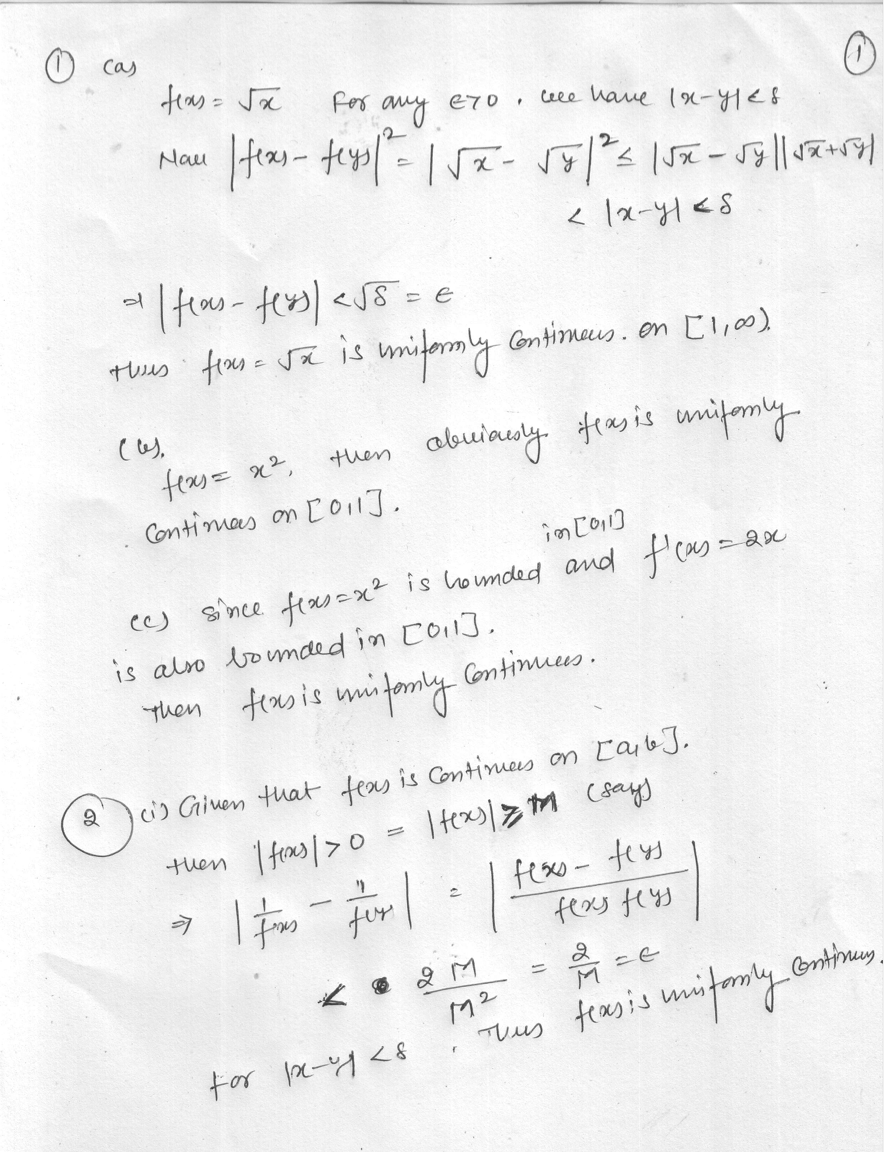 ① (a) ①
f(x) = √x For any ε>0, we have |x-y|<δ
Now |f(x) - f(y)|² = |√x - √y|² ≤ |√x - √y||√x+√y|
< |x-y| < δ
⇒ |f(x) - f(y)| < √δ = ε
Thus f(x) = √x is uniformly Continuous. on [1,∞).
(b).
f(x) = x², then obviously f(x) is uniformly
Continuous on [0,1].
in [0,1]
(c) Since f(x)=x² is bounded and f'(x) = 2x
is also bounded in [0,1].
Then f(x) is uniformly Continuous.
② (i) Given that f(x) is Continues on [a,b].
then |f(x)|>0 = |f(x)| ≥ M (say)
⇒ |1/f(x) - 1/f(y)| = |(f(x) - f(y))/(f(x) f(y))|
< 2M/M² = 2/M = ε
For |x-y| <δ, Thus f(x) is uniformly Continuous.